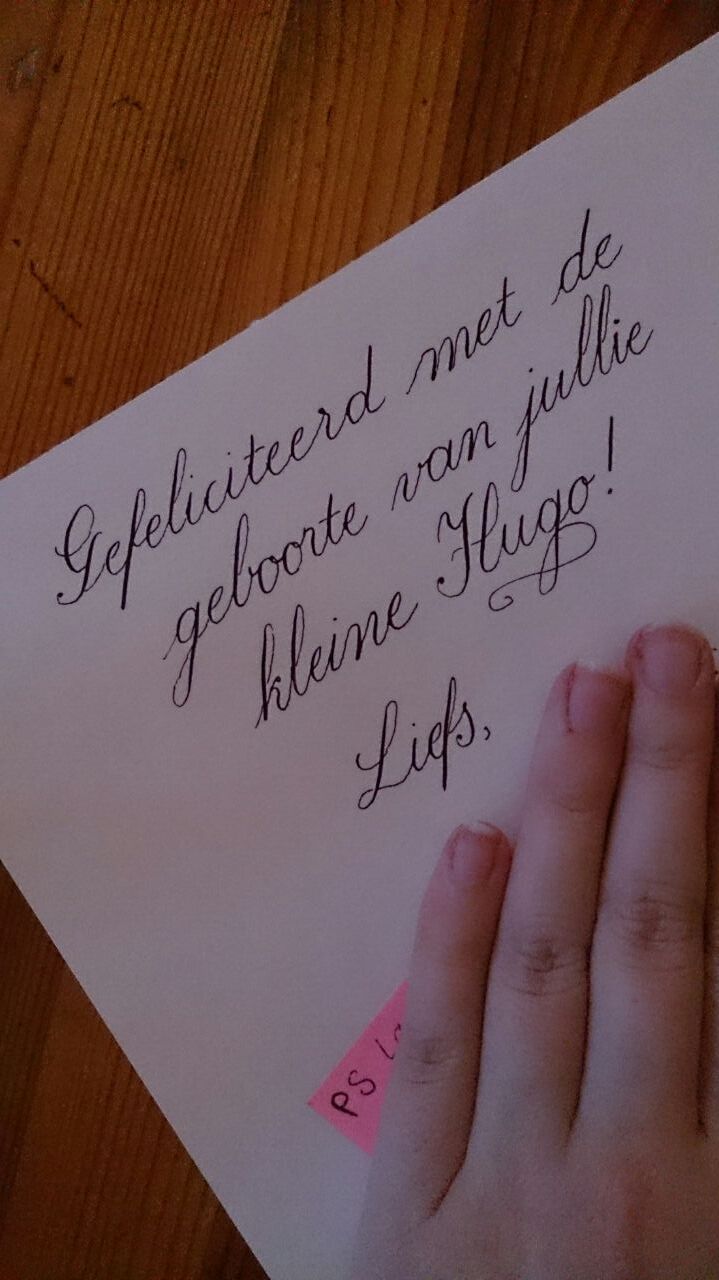 Gefeliciteerd met de
geboorte van jullie
kleine Hugo!
Liefs,
PS